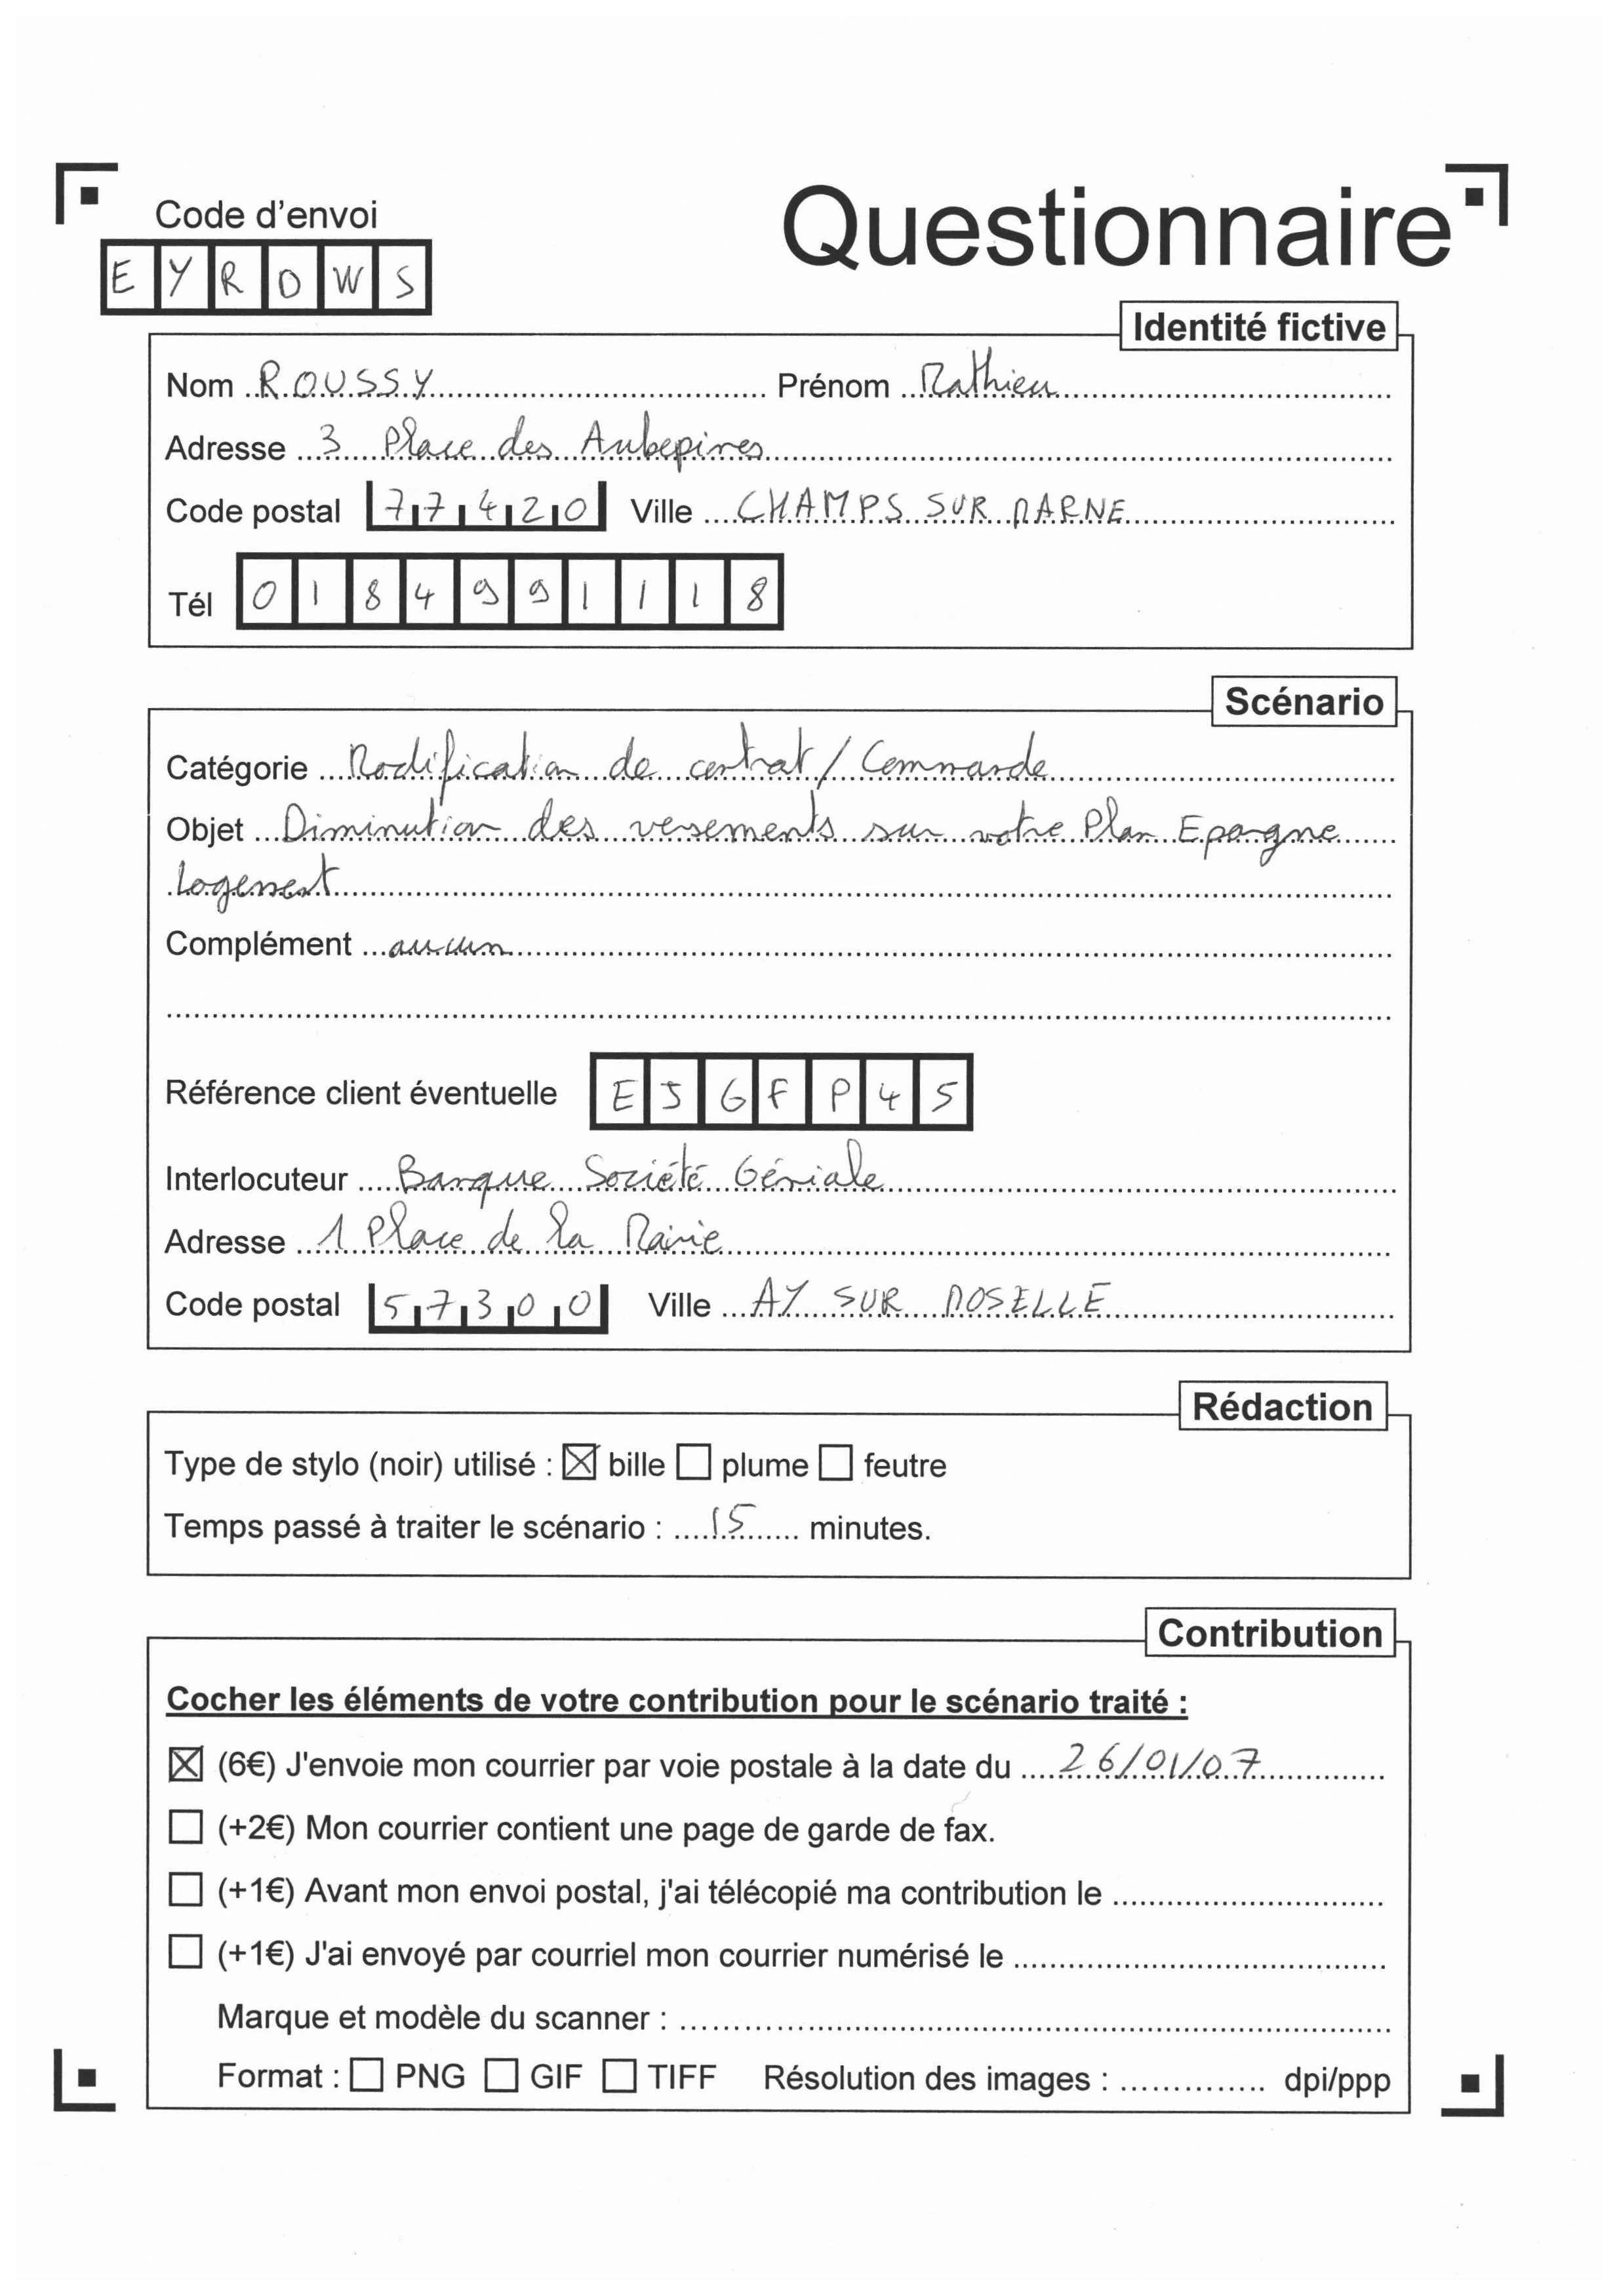 Code d'envoi
Questionnaire
EYROWS
Identité fictive
Nom ROUSSY Prénom Mathieu
Adresse 3 Place des Aubepines
Code postal 77420 Ville CHAMPS SUR MARNE
Tél 0184991118
Scénario
Catégorie Modification de contrat / Commande
Objet Diminution des versements sur votre Plan Epargne
Logement
Complément aucun
Référence client éventuelle EJGFP45
Interlocuteur Banque Société Géniale
Adresse 1 Place de la Mairie
Code postal 57300 Ville AY SUR MOSELLE
Rédaction
Type de stylo (noir) utilisé : ☒ bille ☐ plume ☐ feutre
Temps passé à traiter le scénario : 15 minutes.
Contribution
Cocher les éléments de votre contribution pour le scénario traité :
☒ (6€) J'envoie mon courrier par voie postale à la date du 26/01/07
☐ (+2€) Mon courrier contient une page de garde de fax.
☐ (+1€) Avant mon envoi postal, j'ai télécopié ma contribution le
☐ (+1€) J'ai envoyé par courriel mon courrier numérisé le
Marque et modèle du scanner :
Format : ☐ PNG ☐ GIF ☐ TIFF Résolution des images : dpi/ppp